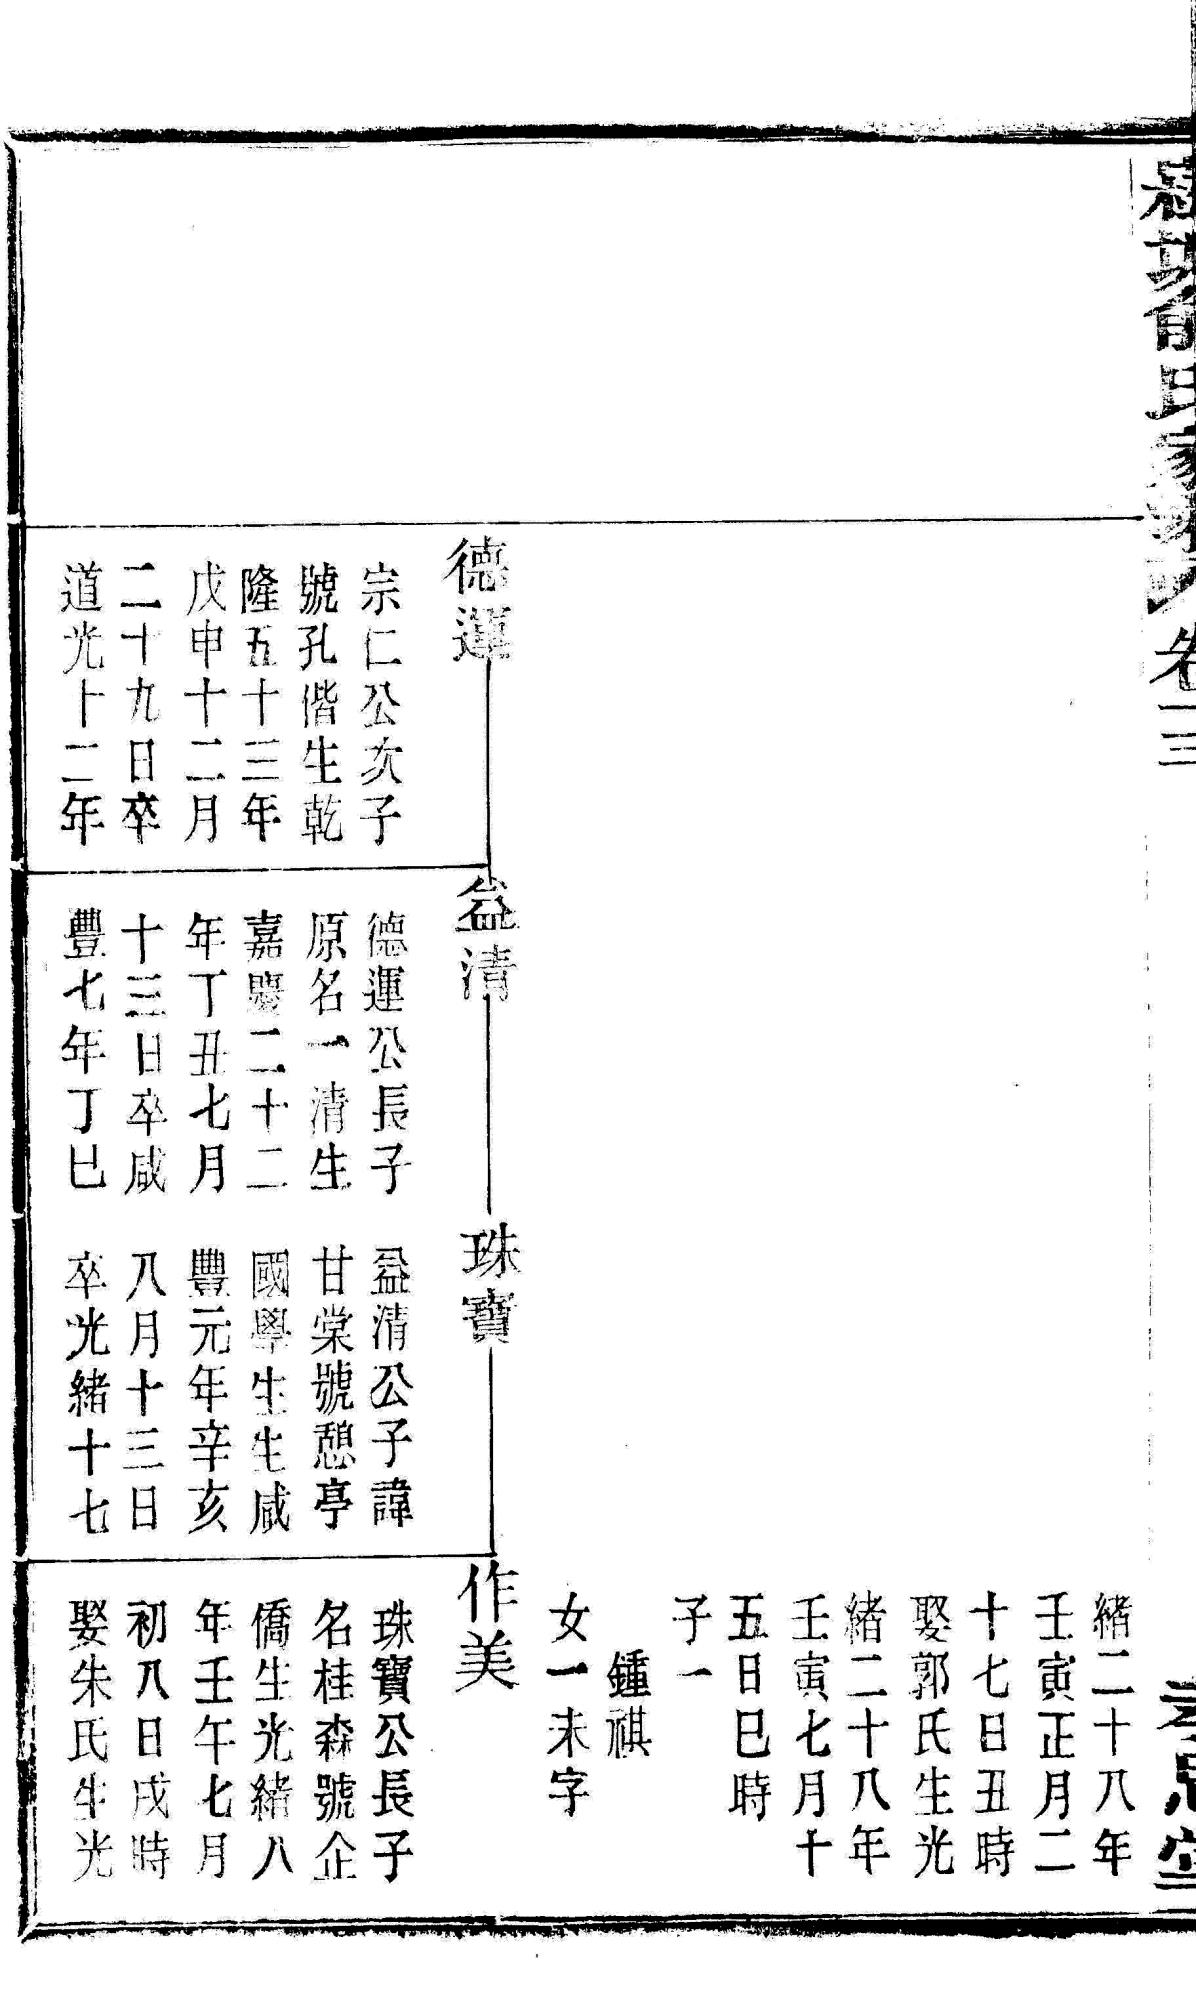 氏家
卷三
孝思堂
緒二十八年
壬寅正月二
十七日丑時
娶郭氏生光
緒二十八年
壬寅七月十
五日巳時
子一
鍾祺
女一未字
德運
宗仁公次子
號孔偕生乾
隆五十三年
戊申十二月
二十九日卒
道光十二年
益清
德運公長子
原名一清生
嘉慶二十二
年丁丑七月
十三日卒咸
豐七年丁巳
珠寶
益清公子諱
甘棠號憩亭
國學生生咸
豐元年辛亥
八月十三日
卒光緒十七
作美
珠寶公長子
名桂森號企
僑生光緒八
年壬午七月
初八日戌時
娶朱氏生光